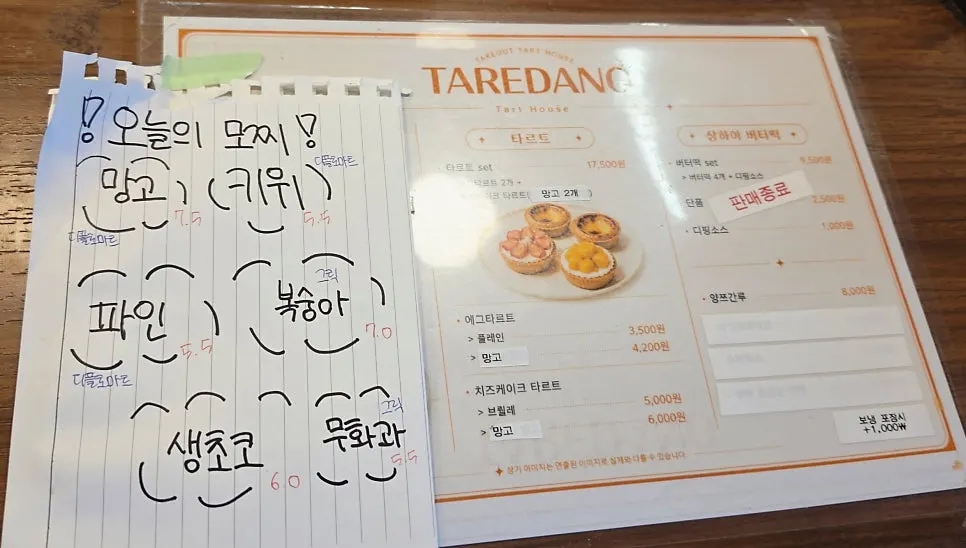 ! 오늘의 모찌 !
망고 7.5 디플로마트
키위 5.5 디플로마트
파인 5.5 디플로마트
복숭아 그릭 7.0
생초코 6.0
무화과 그릭 5.5
TAKEOUT TART HOUSE
TAREDANG
Tart House
타르트
타르트 set 17,500원
타르트 2개 +
타르트( 망고 2개 )
에그타르트
> 플레인 3,500원
> 망고 4,200원
치즈케이크 타르트
> 브륄레 5,000원
> 망고 6,000원
상기 이미지는 연출된 이미지로 실제와 다를 수 있습니다.
상하이 버터떡
버터떡 set 9,500원
> 버터떡 4개 + 디핑소스
단품 판매종료 2,500원
디핑소스 1,000원
양쯔간루 8,000원
보냉 포장시
+1,000₩